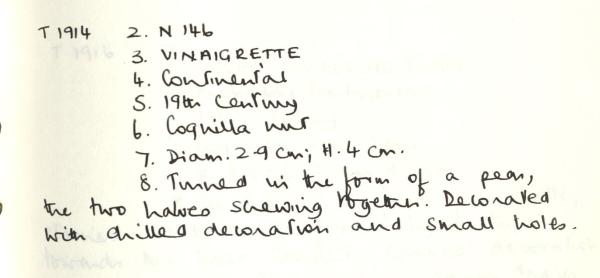 T 1914 2. N 146
3. VINAIGRETTE
4. Continental
5. 19th Century
6. Coquilla nut
7. Diam. 2.9 cm; H. 4 cm.
8. Turned in the form of a pear,
the two halves screwing together. Decorated
with drilled decoration and small holes.